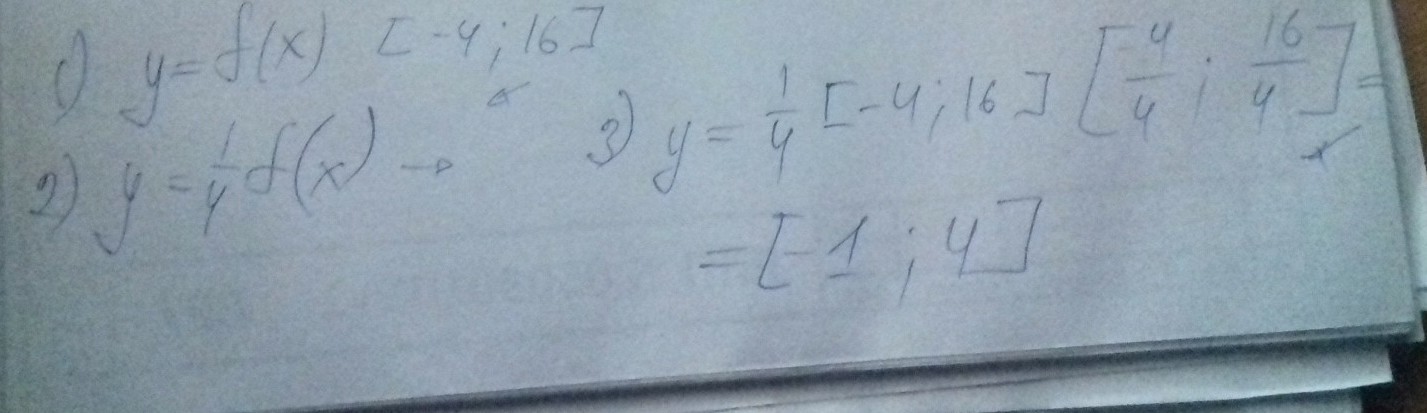 1) y = f(x) [-4; 16]
2) y = 1/4 f(x) →
3) y = 1/4 [-4; 16] [-4/4; 16/4] =
= [-1; 4]